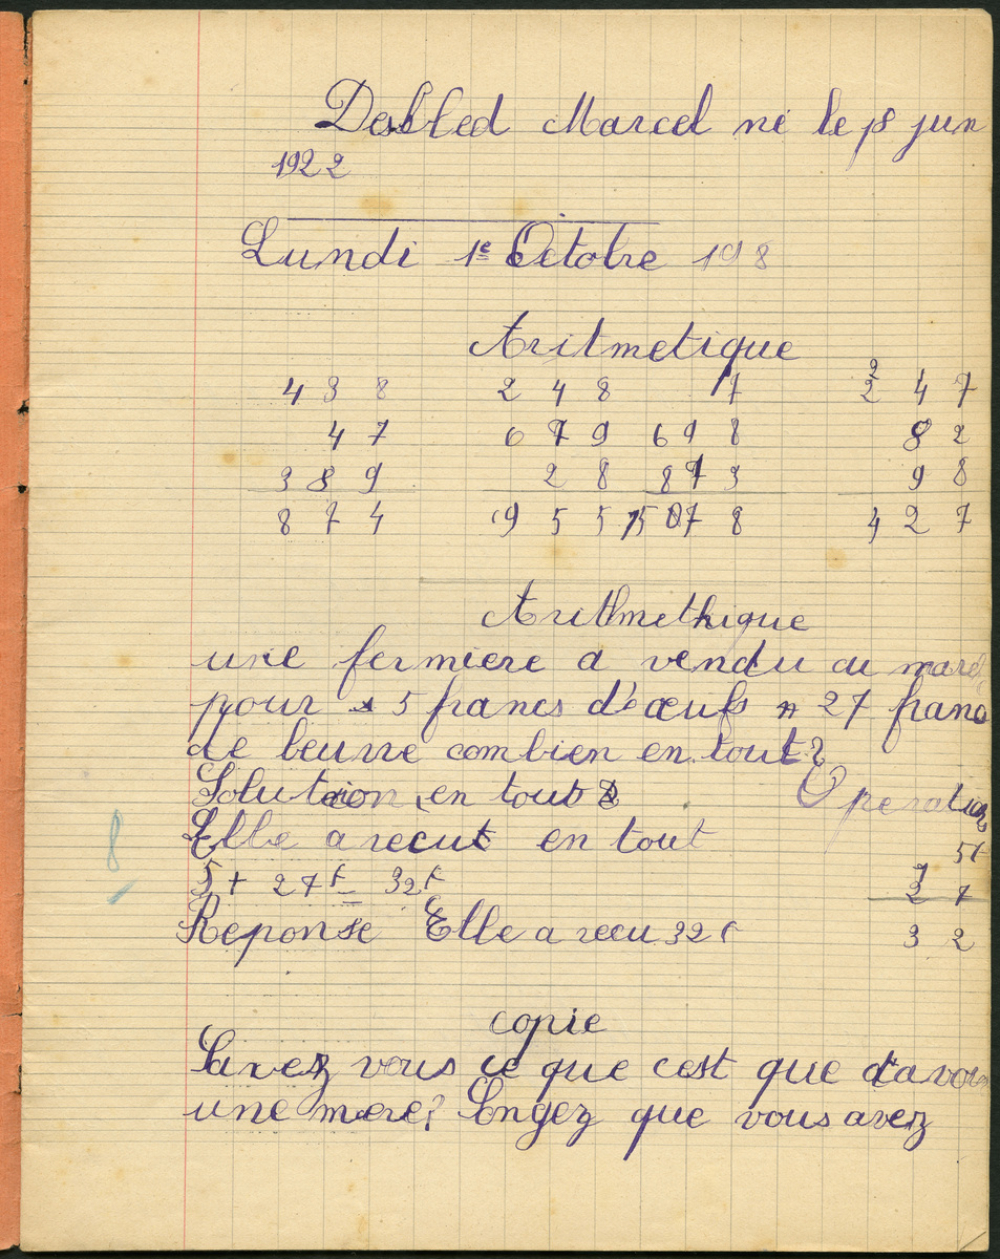 Desbled Marcel né le 18 juin
1922
Lundi 1e Octobre 198
Aritmetique
4 3 8 2 4 8 17 2 2 4 7
4 7 6 7 9 6 9 8 8 2
3 8 9 2 8 8 7 3 9 8
8 7 4 9 5 5 15 8 7 8 4 2 7
Arithmethique
une fermiere a vendu au marc
pour 5 francs d'œufs 27 franc
de beurre combien en tout?
Solution en tout Operation
Elle a recut en tout 5f
5 + 27f = 32f 2 7
Reponse Elle a recu 32f 3 2
copie
Savez vous ce que c'est que d'avoir
une mere? Songez que vous avez
8